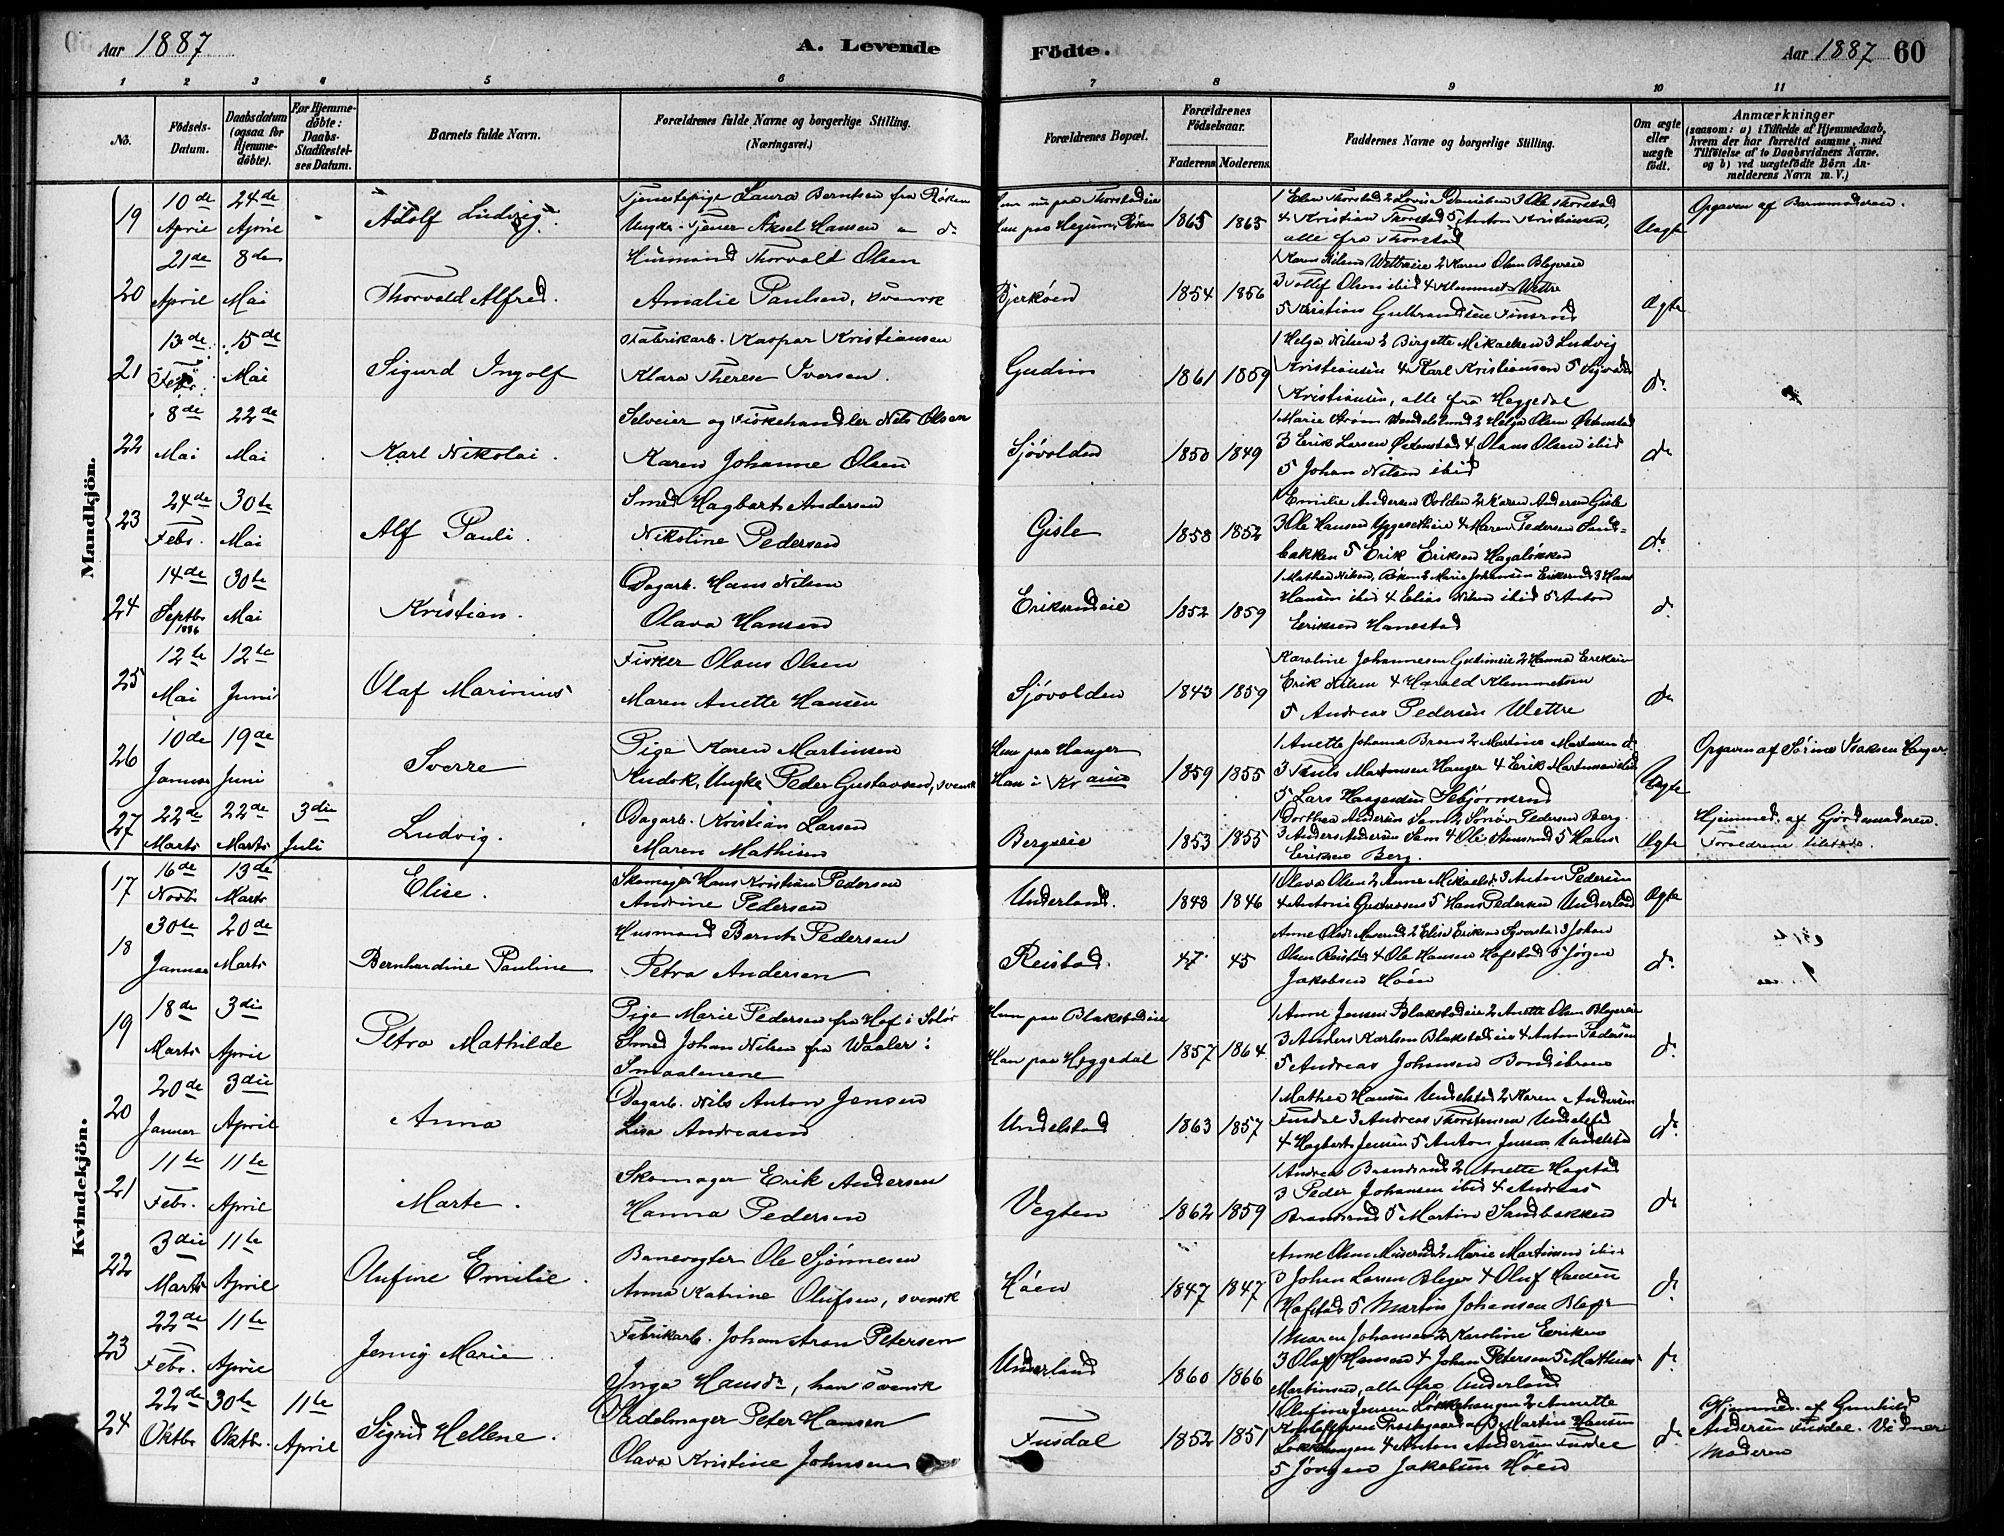 Aar 1887
A. Levende
Födte.
Aar 1887 60
1 2 3 4 5 6 7 8 9 10 11
No.
Födsels-
Datum.
Daabsdatum
(ogsaa for
Hjemme-
döbte).
For Hjemme-
döbte:
Daabs-
Stadfæstel-
ses Datum.
Barnets fulde Navn.
Forældrenes fulde Navne og borgerlige Stilling.
(Næringsvei.)
Forældrenes Bopæl.
Forældrenes
Födselsaar.
Faderens. Moderens.
Faddernes Navne og borgerlige Stilling.
Om ægte
eller
uægte
födt.
Anmærkninger
(saasom: a) i Tilfælde af Hjemmedaab,
hvem der har forrettet samme, med
Tilföielse af to Daabsvidners Navne,
og b) ved uægtefödte Börn An-
melderens Navn m. V.)
Mandkjön.
19 10de April 24de April Adolf Ludvig.
Tjenestepige Laura Berntsen fra Røken
Ungk. Tjener Aksel Hansen
1865 1865
1 Ellen Thorstad 2 Lovise Danielsen 3 Ole Thorstad
4 Kristian Thorstad 5 Anton Kristiansen,
alle fra Thorstad
Uægte
Opgaven af Barnemoderen.
20 21de April 8de Mai Thorvald Alfred.
Husmand Thorvald Olsen
Amalie Paulsen, svensk
Bjerkøen 1854 1856
1 Karen Nilsen Wettreeie 2 Karen Olsen Blegereie
3 Tollef Olsen ibid 4 Klemmet Wettre
5 Kristian Gulbrandsen Finsrud
Ægte
21 13de Febr. 15de Mai Sigurd Ingolf
Fabrikarb. Kaspar Kristiansen
Klara Therese Iversen.
Gudim 1861 1859
1 Helga Nilsen 2 Birgitte Mikaelsen 3 Ludvig
Kristiansen 4 Karl Kristiansen 5
Kristiansen, alle fra Heggedal
do
22 8de Mai 22de Mai Karl Nikolai.
Selveier og Fiskehandler Nils Olsen
Karen Johanne Olsen
Sjøvolden 1850 1849
1 Marie Strøm 2 Helga Olsen Østenstad
3 Erik Larsen Østenstad 4 Olaus Olsen ibid
5 Johan Nilsen ibid
do
23 24de Febr. 30te Mai Alf Pauli.
Smed Hagbart Andersen
Nikoline Pedersen
Gisle 1858 1852
1 Emilie Andersen Volden 2 Karen Andersen Gisle
3 Ole Hansen 4 Maren Pedersen Sand-
bakken 5 Erik Eriksen Hagaløkken
do
24 14de Septbr 1886 30te Mai Kristian.
Dagarb. Hans Nilsen
Olava Hansen
Eriksrudeie 1852 1859
1 Mathea Nilsen, Røken 2 Marie Johansen Eriksrud 3 Hans
Hansen ibid 4 Elias Nilsen ibid 5 Anton
Eriksen Hanestad
do
25 12te Mai 12te Juni Olaf Marinius
Fisker Olaus Olsen
Maren Anette Hansen
Sjøvolden 1843 1859
Karoline Johannesen Gudimeie 2 Hanna Eriksen
Erik Nilsen 4 Harald Klemmetsen
5 Andreas Pedersen Wettre
do
26 10de Januar 19de Juni Sverre
Pige Karen Martinsen
Kudsk, Ungk. Peder Gustavsen, svensk
Hun paa Hanger
Han i Kr ania
1859 1855
1 Anette Johanne Braaten 2 Martine Martinsen
3 Martinsen Hanger 4 Erik Martinsen ibid
5 Lars
Uægte
Opgaven af Sørine Isaksen Hanger.
27 22de Marts 22de Marts 3die Juli Ludvig.
Dagarb. Kristian Larsen
Maren Mathisen
Bergseie 1853 1855
1 Dorthea Andersen Sem 2 Pedersen Berg.
3 Anders Andersen Sem 4 Ole 5 Hans
Eriksen Berg.
Ægte
Hjemmed. af Gjordemoderen.
Forældrene tilstede.
Kvindekjön.
17 16de Novbr 13de Marts Elise.
Skomager Hans Kristian Pedersen
Andrine Pedersen
Underland. 1848 1846
1 Olava Olsen 2 Anne Mikaels. 3 Anton Pedersen
4 Antoni Gustavsen 5 Hans Pedersen Underland
Ægte
18 30te Januar 20de Marts Bernhardine Pauline
Husmand Bernt Pedersen
Petra Andersen
Reistad. 47 45
Anne Olsen Miserud 2 Elise Eriksen 3 Johan
Olsen Reistad 4 Ole Hansen Hofstad 5 Jørgen
Jakobsen Høen
do
19 18de Marts 3die April Petra Mathilde
Pige Marie Pedersen fra Hof i Solør
Smed Johan Nilsen fra Waaler i
Smaalenene
Hun paa Blakstadeie
Han paa Heggedal
1857 1864
1 Anne Jensen Blakstadeie 2 Anette Olsen Blegereie
3 Anders Karlsen Blakstadeie 4 Anton Pedersen
5 Andreas Johansen Bondibraaten
do
20 20de Januar 3die April Anna
Dagarb. Nils Anton Jensen
Lisa Andreasen
Undelstad 1863 1857
1 Mathea Hansen Undelstad 2 Karen Andersen
Fusdal 3 Andreas Thorstensen Undelstad
4 Hagbart Jensen 5 Anton Jensen Undelstad
do
21 11te Febr. 11te April Marte.
Skomager Erik Andersen
Hanna Pedersen
Vegten 1862 1859
1 Andrea Brandsrud 2 Anette Hogstad
3 Peder Johansen ibid 4 Andreas
Brandsrud 5 Martin Sandbakken
do
22 3die Marts 11te April Olufine Emilie.
Banevogter Ole Sjønnesen
Anna Katrine Olufsen, svensk
Høen 1847 1847
Anne Olsen Miserud 2 Marie Martinsen ibid
3 Johan Larsen Bleger 4 Oluf Hansen
Hofstad 5 Martin Johansen Bleger
do
23 22de Febr. 11te April Jenny Marie
Fabrikarb. Johan Aron Petersen
Inga Hansdr, han svensk
Underland 1860 1866
1 Maren Johansen 2 Karoline Eriksen
3 Olaf Hansen 4 Johan Petersen 5 Mathias
Martinsen, alle fra Underland
do
24 22de Oktbr 30te Oktbr. 11te April Sigrid Hellene.
Sadelmager Peter Hansen
Olava Kristine Johnsen
Fusdal 1852 1851
1 Olufine Jensen Løkkehaugen 2 Annette
Præstegaard 3 Martin Hansen
Løkkehaugen 4 Anton Andersen Fusdal
5 Jørgen Jakobsen Høen
do
Hjemmed. af Gunhild
Andersen Fusdal. Vidner
Moderen